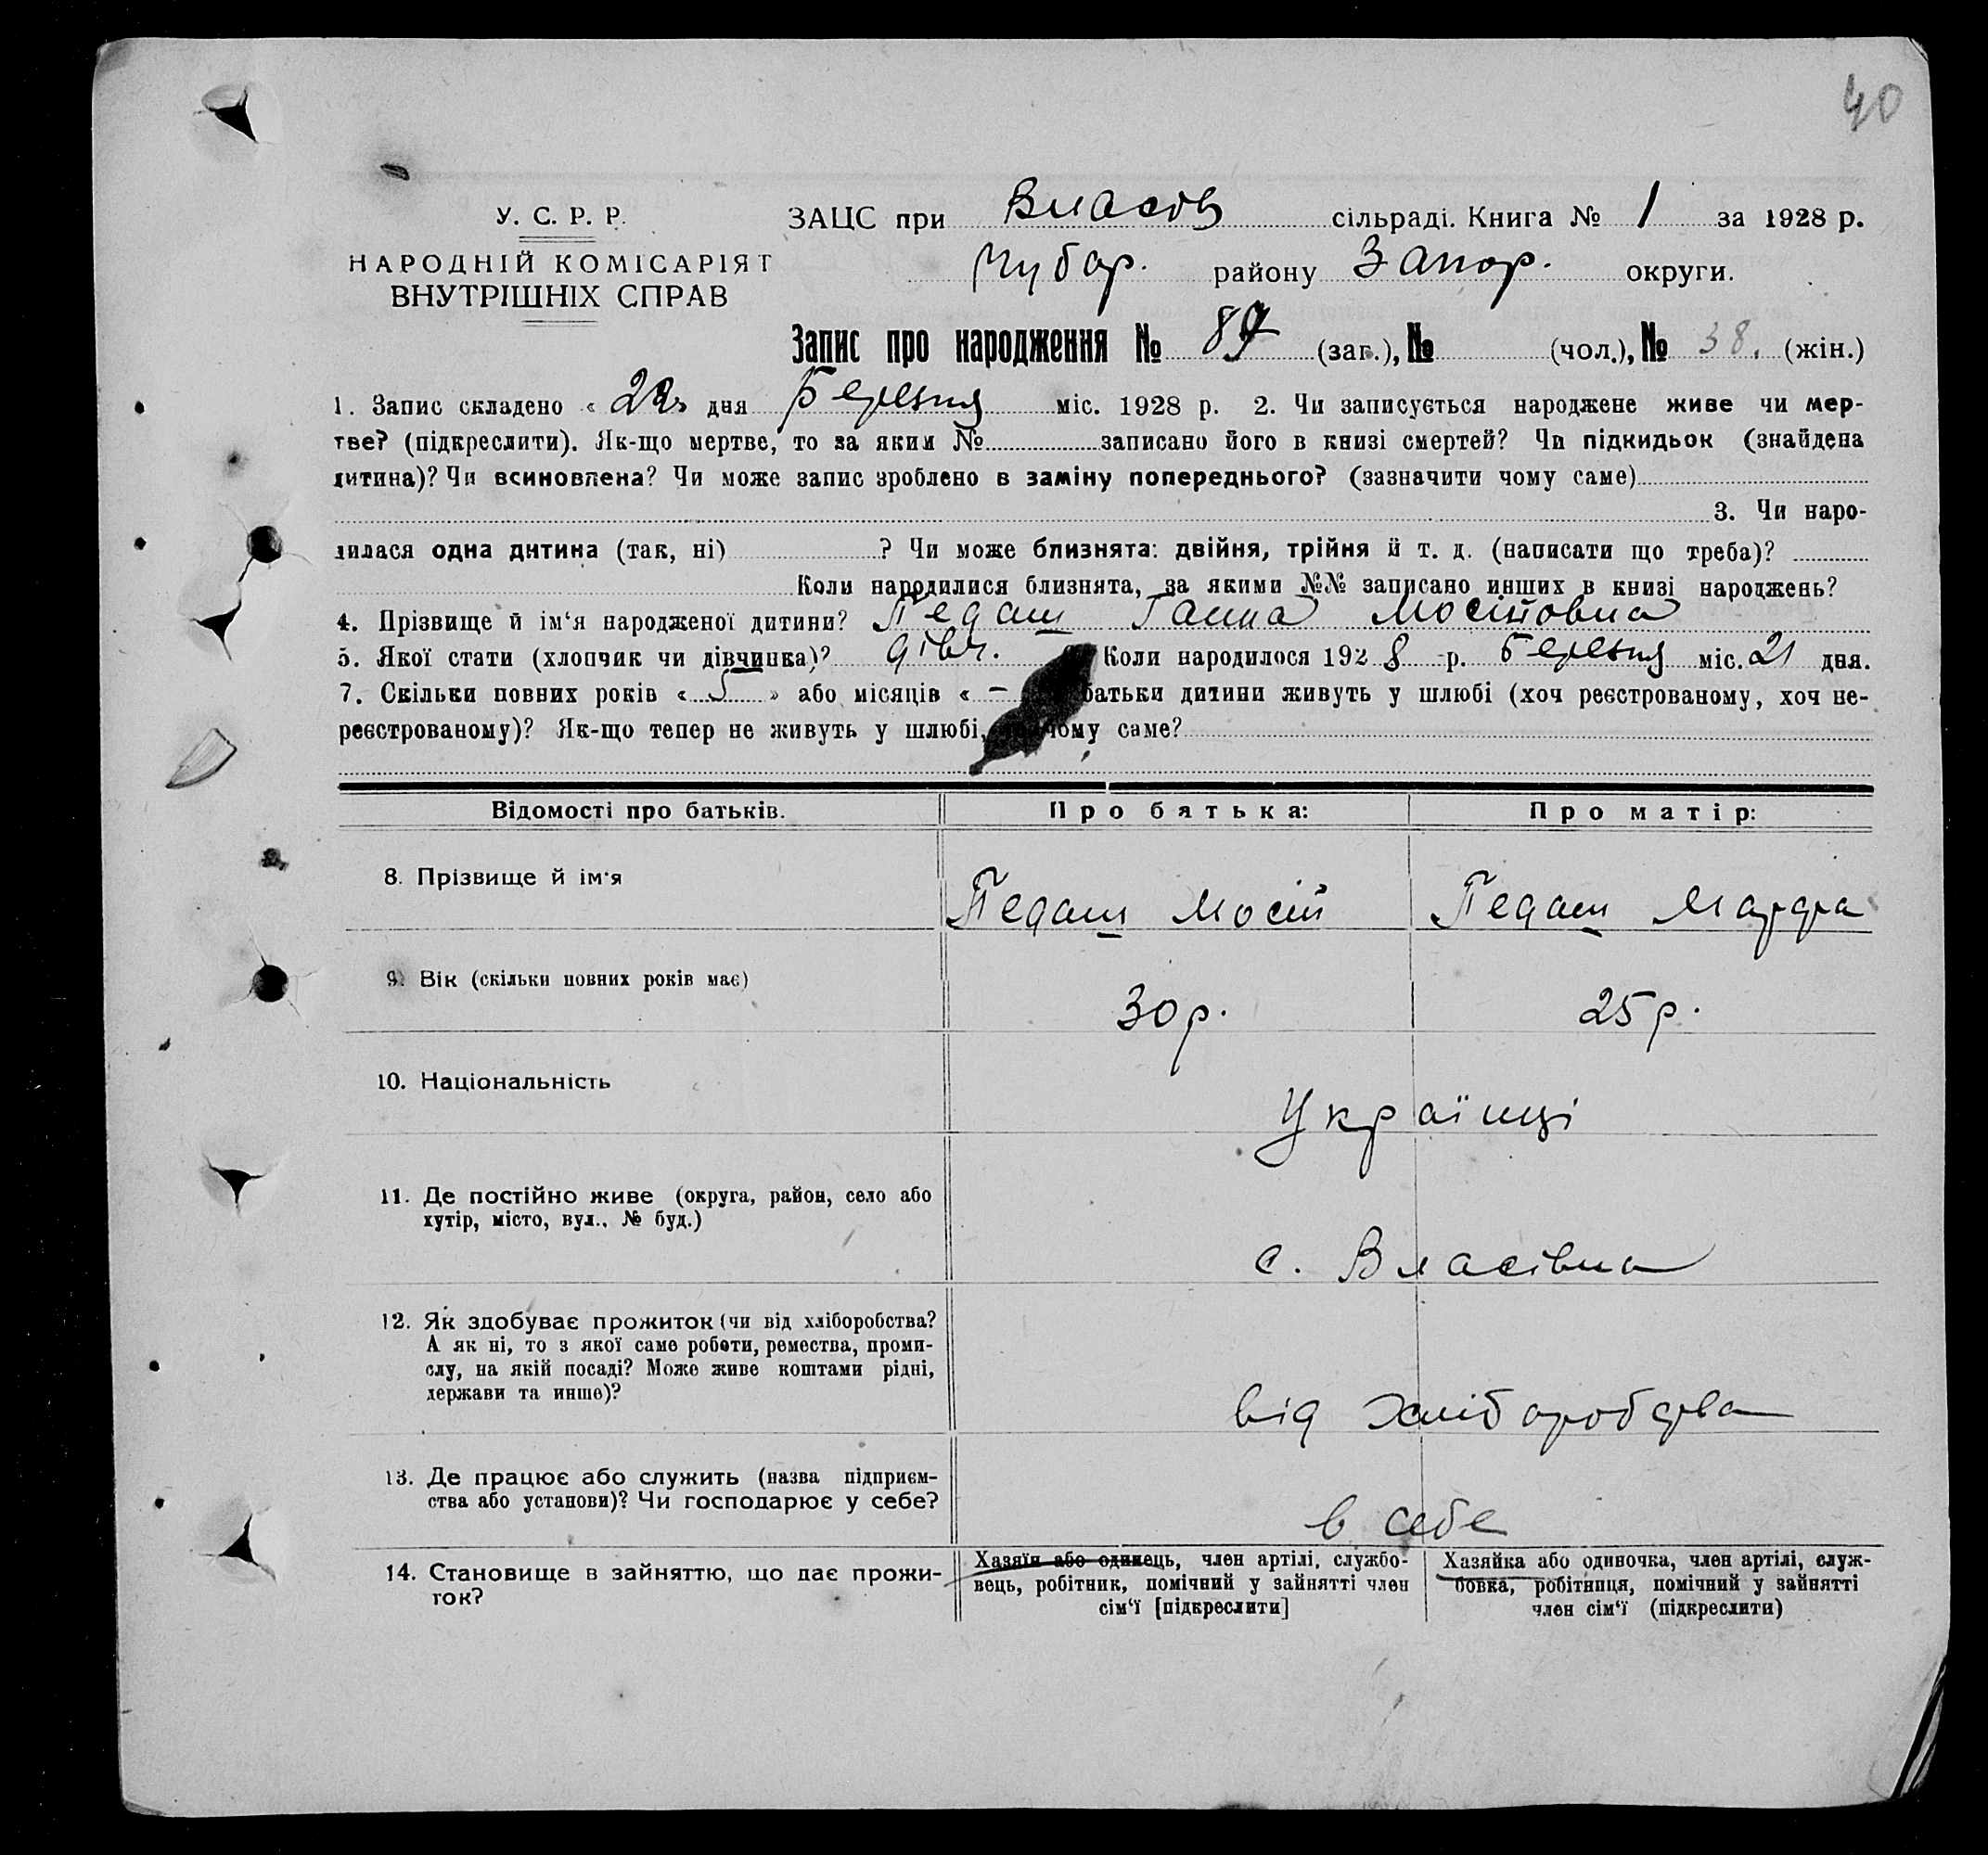 40
У. С. Р. Р.
НАРОДНІЙ КОМІСАРІЯТ
ВНУТРІШНІХ СПРАВ
ЗАЦС при Власов сільраді. Книга № 1 за 1928 р.
Чубар. району Запор. округи.
Запис про народження № (заг.), № (чол.), № 38. (жін.)
1. Запис складено « 22 » дня Березня міс. 1928 р. 2. Чи записується народжене живе чи мер-
тве? (підкреслити). Як-що мертве, то за яким № записано його в книзі смертей? Чи підкидьок (знайдена
дитина)? Чи всиновлена? Чи може запис зроблено в заміну попереднього? (зазначити чому саме)
3. Чи наро-
дилася одна дитина (так, ні) ? Чи може близнята: двійня, трійня й т. д. (написати що треба)?
Коли народилися близнята, за якими №№ записано инших в книзі народжень?
4. Прізвище й ім‘я народженої дитини? Педаш Ганна Мосіївовна
5. Якої стати (хлопчик чи дівчинка)? дівч. Коли народилося 1928 р. Березня міс. 21 дня.
7. Скільки повних років « 5 » або місяців « – батьки дитини живуть у шлюбі (хоч реєстрованому, хоч не-
реєстрованому)? Як-що тепер не живуть у шлюбі, чому саме?
Відомості про батьків. Про батька: Про матір:
8. Прізвище й ім‘я Педаш Мосій Педаш Марфа
9. Вік (скільки повних років має) 30 р. 25 р.
10. Національність Українці
11. Де постійно живе (округа, район, село або
хутір, місто, вул., № буд.) с. Власівка
12. Як здобуває прожиток (чи від хліборобства?
А як ні, то з якої саме роботи, ремества, проми-
слу, на якій посаді? Може живе коштами рідні,
держави та инше)? від хліборобства
13. Де працює або служить (назва підприєм-
ства або установи)? Чи господарює у себе? в себе
14. Становище в зайняттю, що дає прожи-
ток?
Хазяїн або одинець, член артілі, службо-
вець, робітник, помічний у зайнятті член
сім‘ї [підкреслити]
Хазяйка або одиночка, член артілі, служ-
бовка, робітниця, помічний у зайнятті
член сім‘ї (підкреслити)